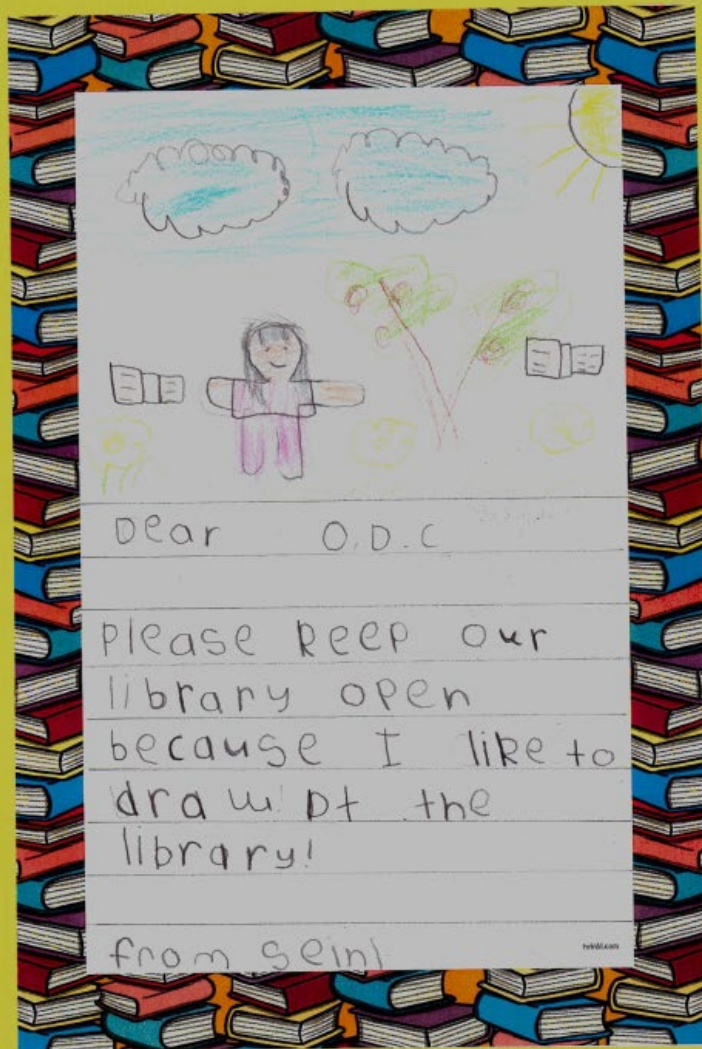 Dear O.D.C
Please keep our
library open
because I like to
draw at the
library!
from Seini
twinkl.com